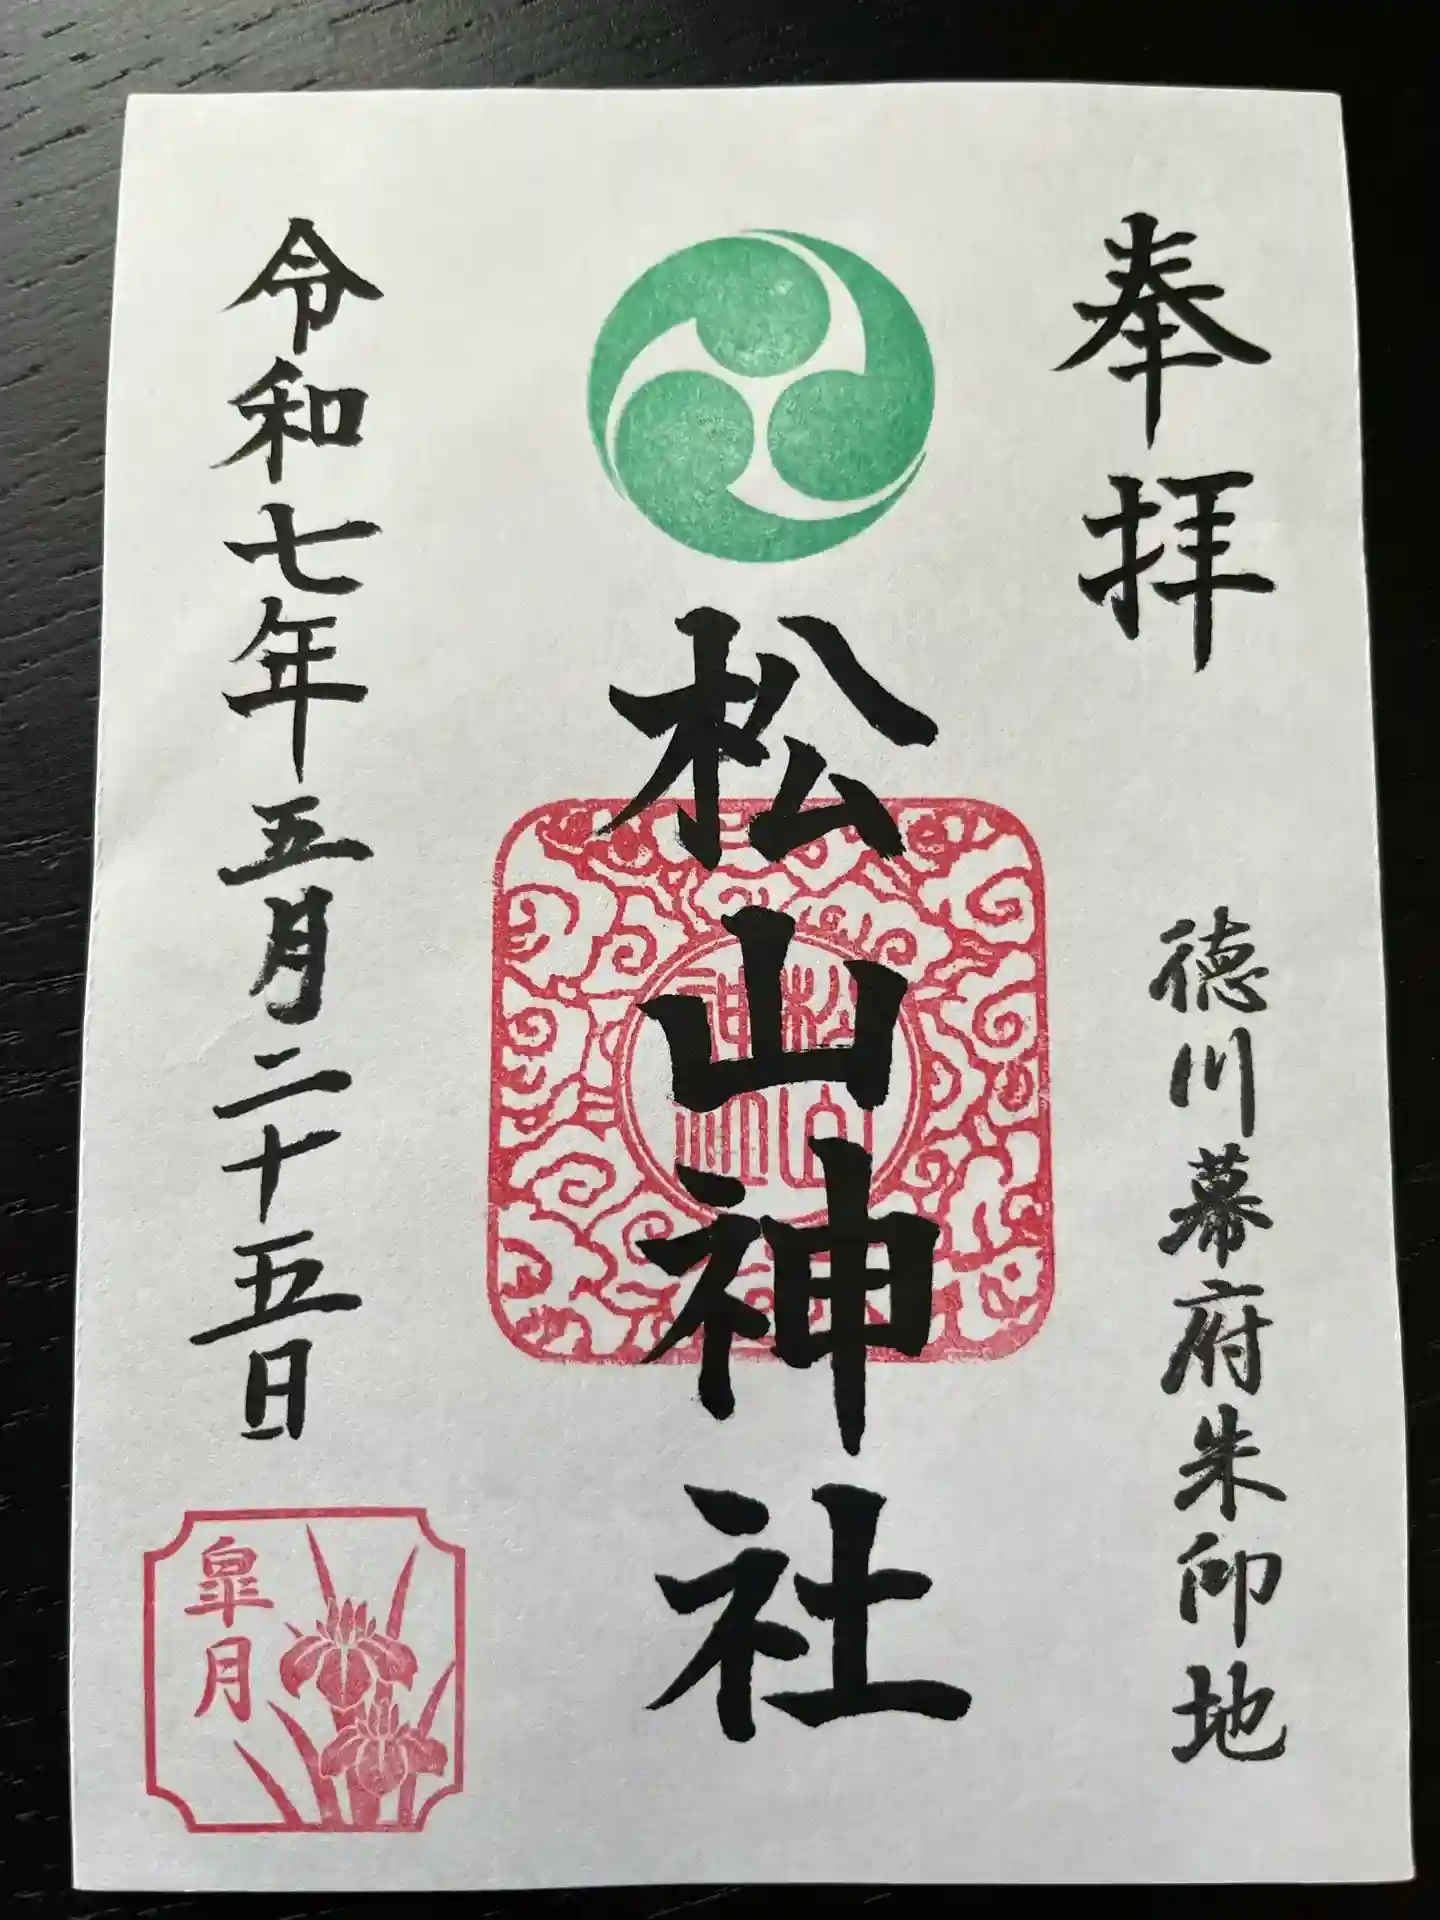 奉拝
徳川幕府朱印地
松山神社
令和七年五月二十五日
皐月